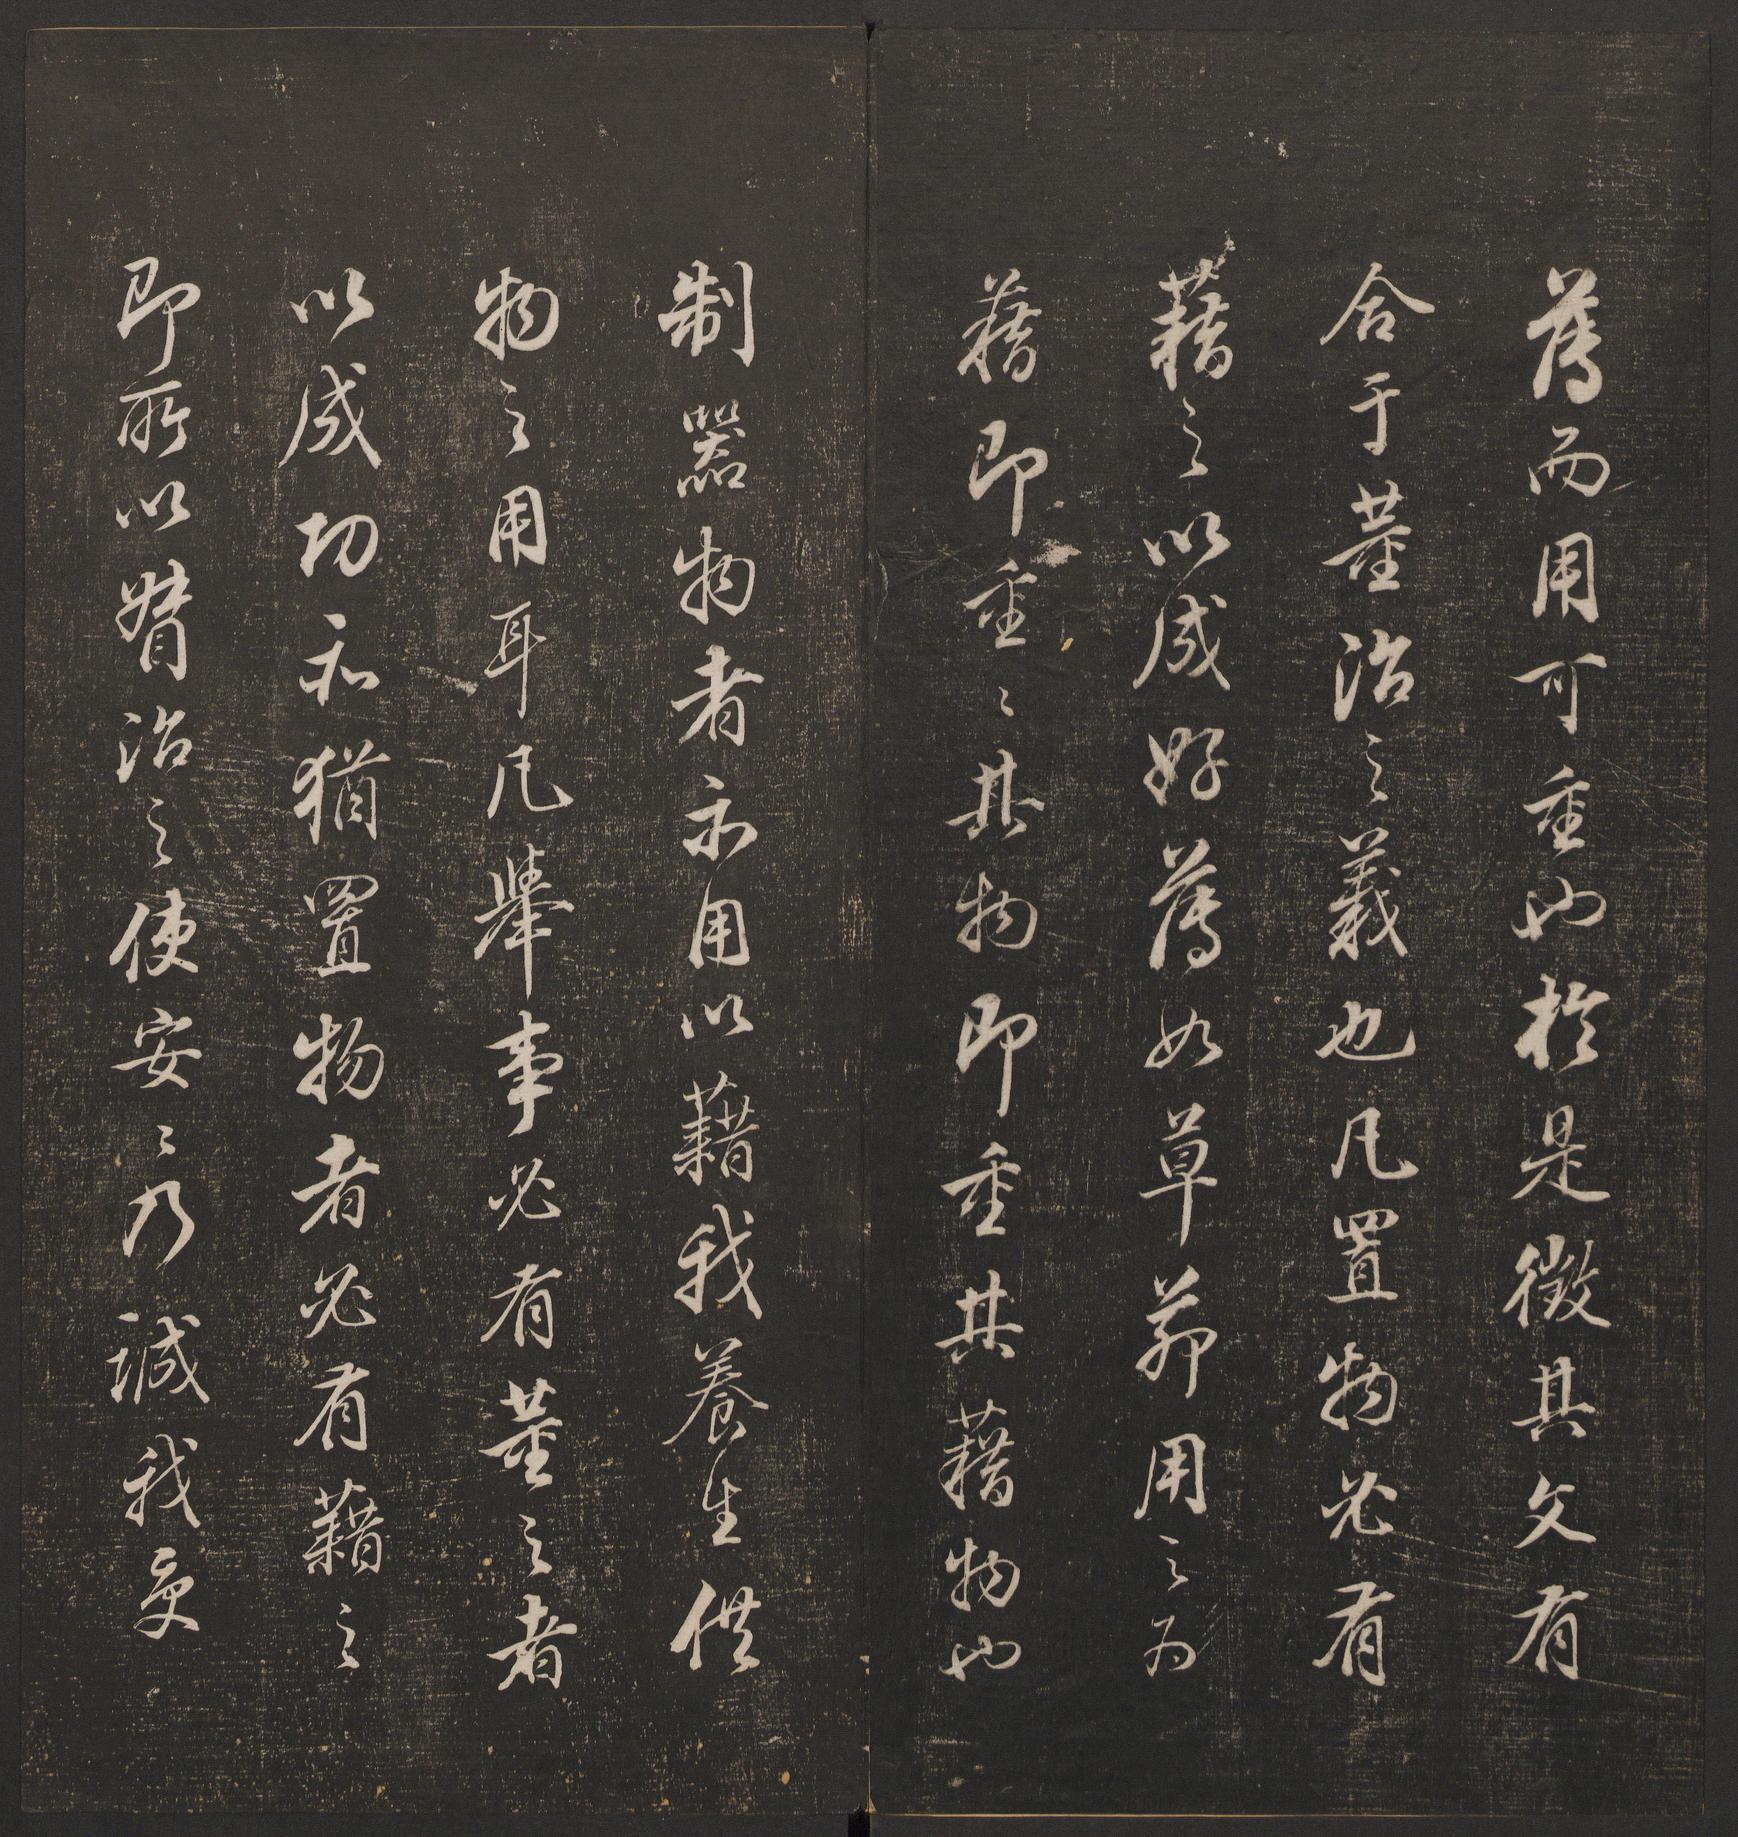 薄而用可重也於是徵其文有
合于董治之義也凡置物必有
藉之以成好薄如草茅用之為
藉即重〻其物即重其藉物也
制器物者亦用以藉我養生供
物之用耳凡舉事必有董之者
以成功亦猶置物者必有藉之
即所以督治之使安〻乃誠我受